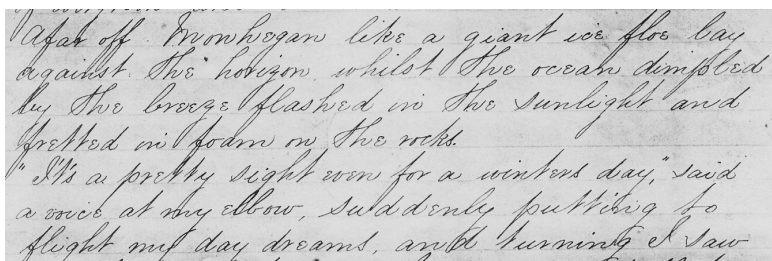 Afar off Monhegan like a giant ice floe lay
against the horizon whilst the ocean dimpled
by the breeze flashed in the sunlight and
fretted in foam on the rocks.
"It's a pretty sight even for a winters day," said
a voice at my elbow, suddenly putting to
flight my day dreams, and turning I saw